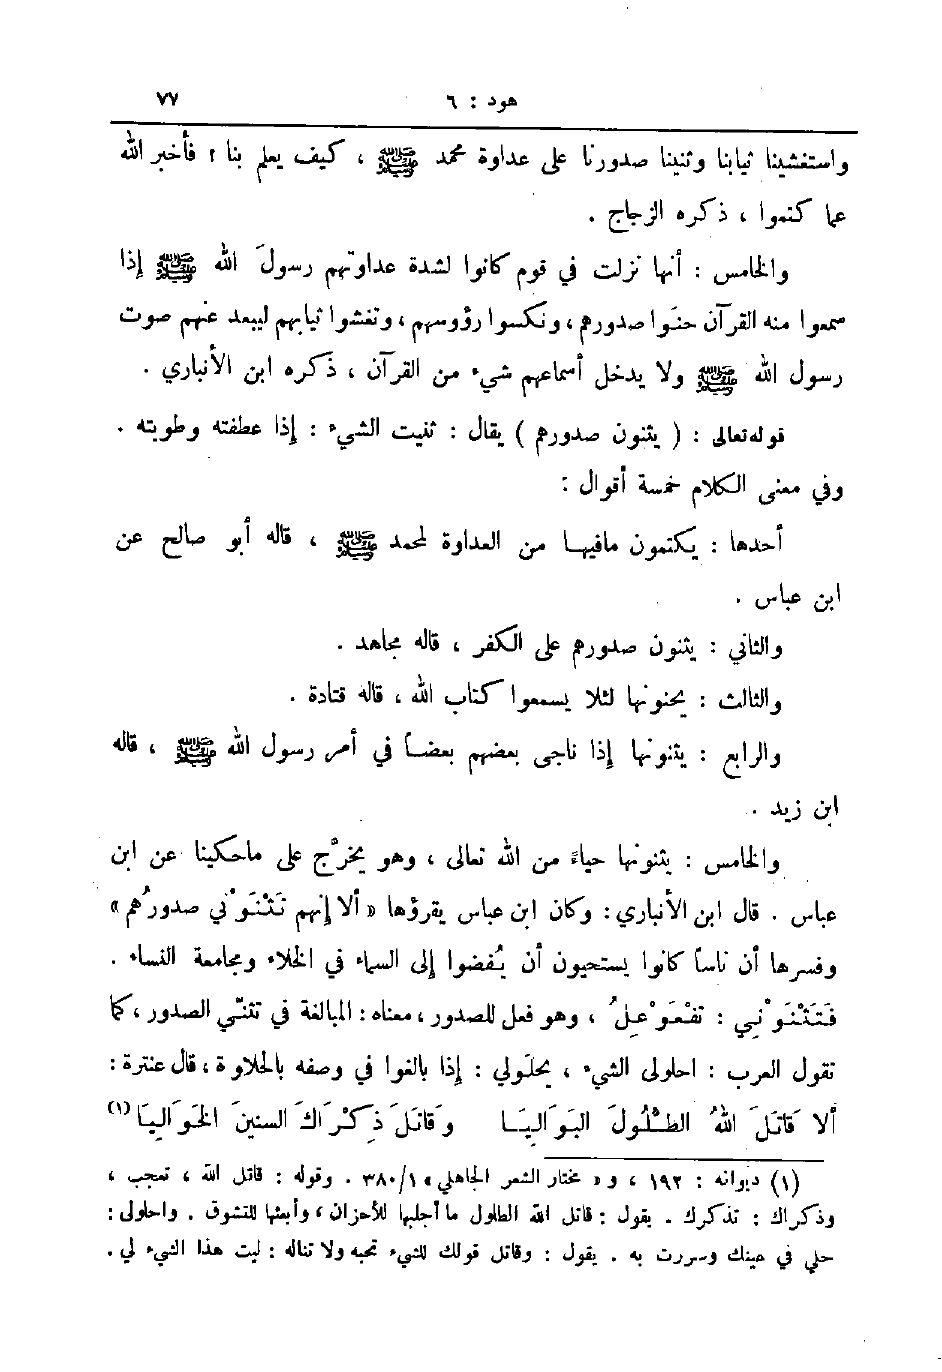 هود : ٦ ٧٧
واستغشينا ثيابنا وثنينا صدورنا على عداوة محمد ﷺ ، كيف يعلم بنا ؟ فأخبر الله
عما كتموا ، ذكره الزجاج .
والخامس : أنها نزلت في قوم كانوا لشدة عداوتهم رسولَ الله ﷺ إذا
سمعوا منه القرآن حنَوا صدورهم ، ونكسوا رؤوسهم ، وتغشوا ثيابهم ليبعد عنهم صوت
رسول الله ﷺ ولا يدخل أسماعهم شيء من القرآن ، ذكره ابن الأنباري .
قوله تعالى : ( يثنون صدورهم ) يقال : ثنيت الشيء : إذا عطفته وطويته .
وفي معنى الكلام خمسة أقوال :
أحدها : يكتمون مافيها من العداوة لمحمد ﷺ ، قاله أبو صالح عن
ابن عباس .
والثاني : يثنون صدورهم على الكفر ، قاله مجاهد .
والثالث : يحنونها لئلا يسمعوا كتاب الله ، قاله قتادة .
والرابع : يثنونها إذا ناجى بعضهم بعضاً في أمر رسول الله ﷺ ، قاله
ابن زيد .
والخامس : يثنونها حياءً من الله تعالى ، وهو يخرَّج على ماحكينا عن ابن
عباس . قال ابن الأنباري : وكان ابن عباس يقرؤها « ألا إنهم تَثْنَوْني صدورُهم »
وفسرها أن ناساً كانوا يستحيون أن يُفضوا إلى السماء في الخلاء ومجامعة النساء .
فَتَثْنَوْنِي : تَفْعَوْعِلُ ، وهو فعل للصدور ، معناه : المبالغة في تثنّي الصدور ، كما
تقول العرب : احلولى الشيء ، يحلَولي : إذا بالغوا في وصفه بالحلاوة ، قال عنترة :
ألا قَاتَلَ اللهُ الطُّلُولَ البَوَالِيَا وقَاتَلَ ذِكْرَاكَ السنينَ الخَوَالِيَا (١)
(١) ديوانه : ١٩٢ ، و« مختار الشعر الجاهلي » ٣٨٠/١ . وقوله : قاتل الله ، تعجب ،
وذكراك : تذكرك . يقول : قاتل الله الطلول ما أجلبها للأحزان ، وأبعثها للتشوق . واحلولى :
حلي في عينك وسررت به . يقول : وقاتل قولك للشيء تحبه ولا تناله : ليت هذا الشيء لي .